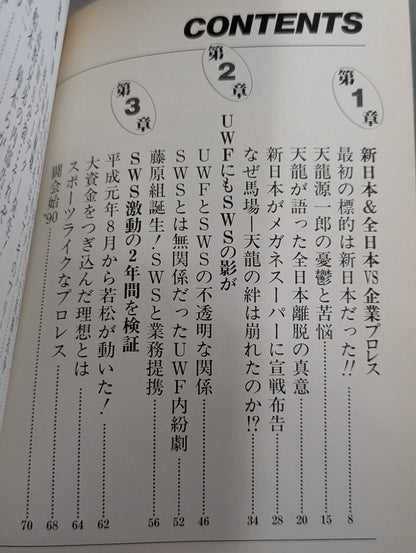 CONTENTS
第1章
新日本&全日本VS企業プロレス
最初の標的は新日本だった!! 8
天龍源一郎の憂鬱と苦悩 15
天龍が語った全日本離脱の真意 20
新日本がメガネスーパーに宣戦布告 28
なぜ馬場―天龍の絆は崩れたのか!? 34
第2章
UWFにもSWSの影が
UWFとSWSの不透明な関係 46
SWSとは無関係だったUWF内紛劇 52
藤原組誕生!SWSと業務提携 56
第3章
SWS激動の2年間を検証
平成元年8月から若松が動いた! 62
大資金をつぎ込んだ理想とは 64
スポーツライクなプロレス 68
闘会始'90 70